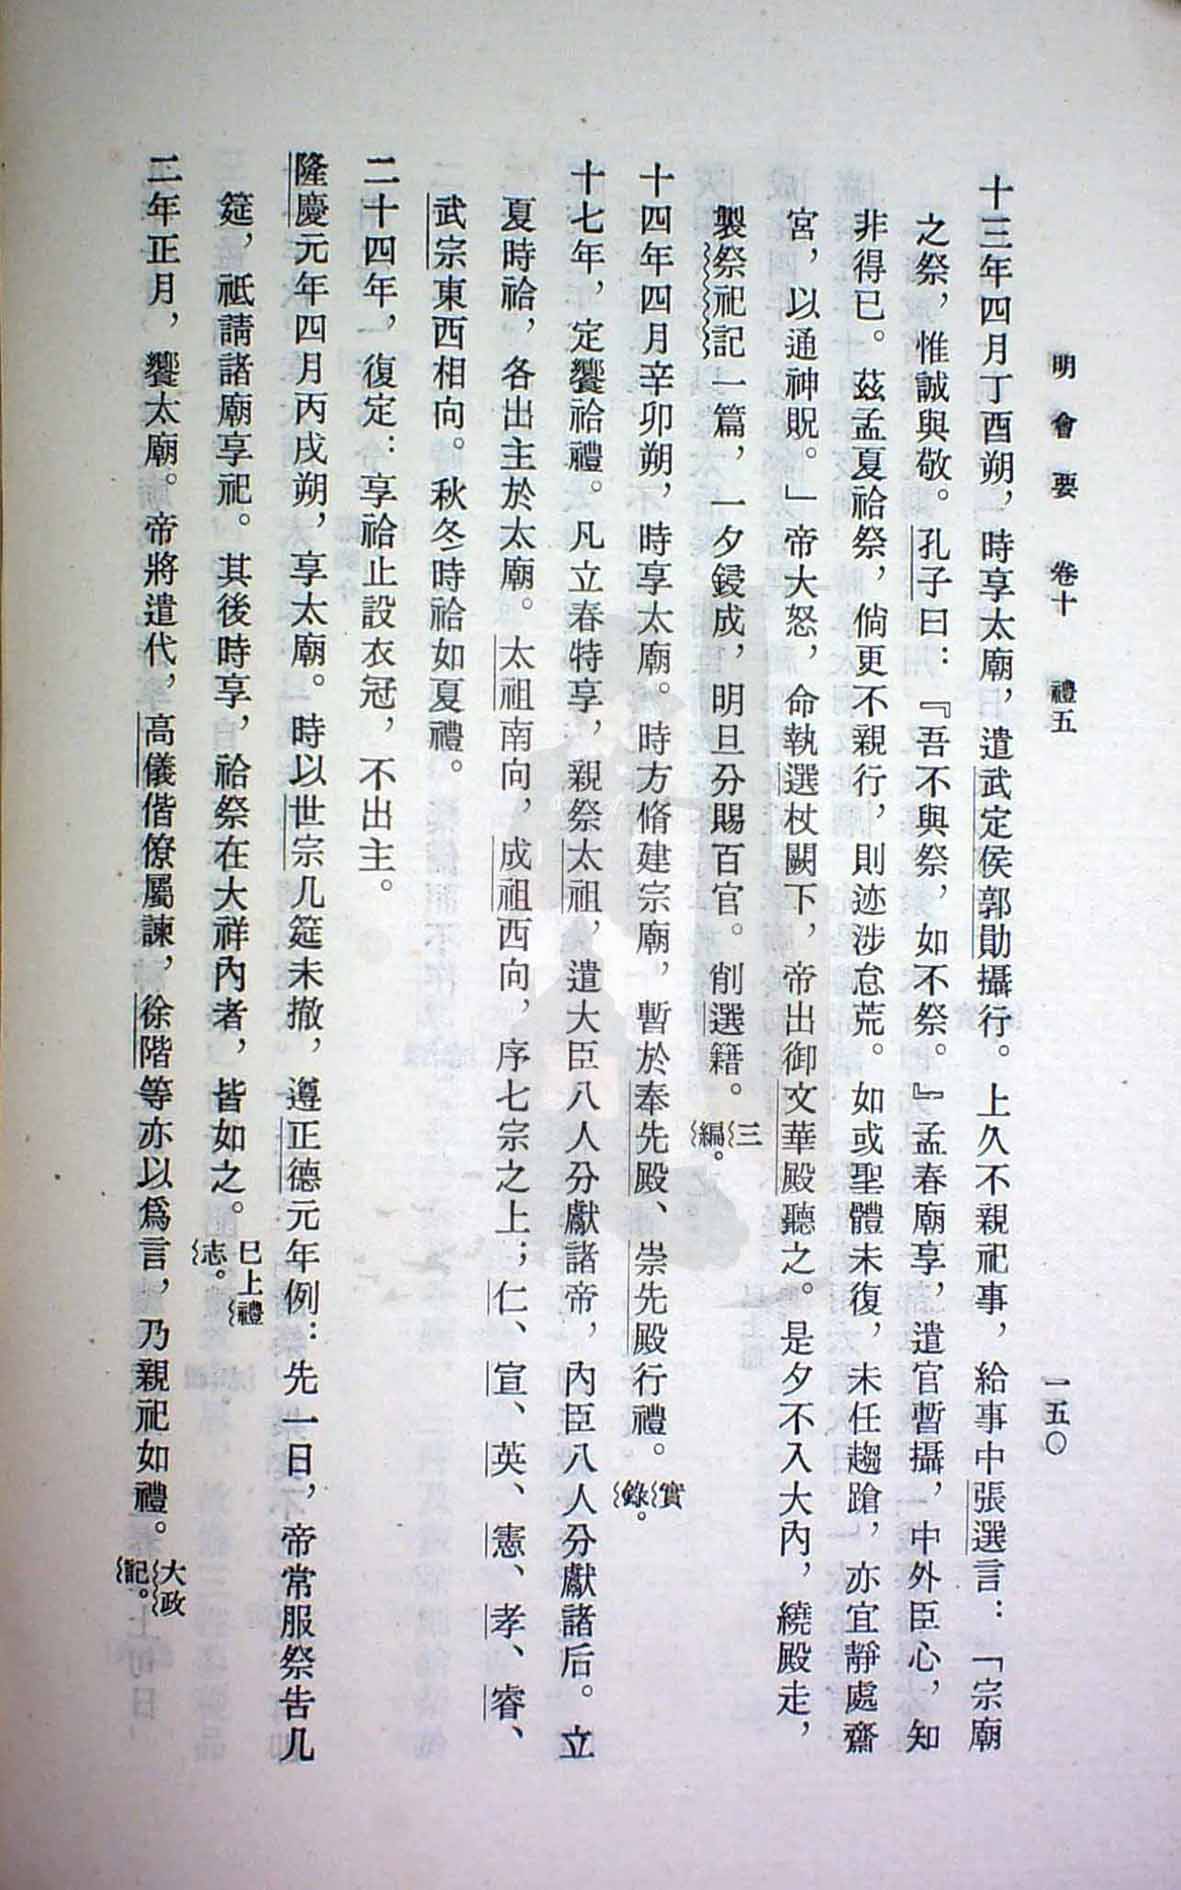 明會要　卷十　禮五　一五〇
十三年四月丁酉朔，時享太廟，遣武定侯郭勛攝行。上久不親祀事，給事中張選言：「宗廟
之祭，惟誠與敬。孔子曰：『吾不與祭，如不祭。』孟春廟享，遣官暫攝，中外臣心，知
非得已。茲孟夏祫祭，倘更不親行，則迹涉怠荒。如或聖體未復，未任趨蹌，亦宜靜處齋
宮，以通神貺。」帝大怒，命執選杖闕下，帝出御文華殿聽之。是夕不入大內，繞殿走，
製祭祀記一篇，一夕鋟成，明旦分賜百官。削選籍。三編。
十四年四月辛卯朔，時享太廟。時方脩建宗廟，暫於奉先殿、崇先殿行禮。實錄。
十七年，定饗祫禮。凡立春特享，親祭太祖，遣大臣八人分獻諸帝，內臣八人分獻諸后。立
夏時祫，各出主於太廟。太祖南向，成祖西向，序七宗之上；仁、宣、英、憲、孝、睿、
武宗東西相向。秋冬時祫如夏禮。
二十四年，復定：享祫止設衣冠，不出主。
隆慶元年四月丙戌朔，享太廟。時以世宗几筵未撤，遵正德元年例：先一日，帝常服祭告几
筵，祇請諸廟享祀。其後時享，祫祭在大祥內者，皆如之。已上禮志。
二年正月，饗太廟。帝將遣代，高儀偕僚屬諫，徐階等亦以為言，乃親祀如禮。大政記。